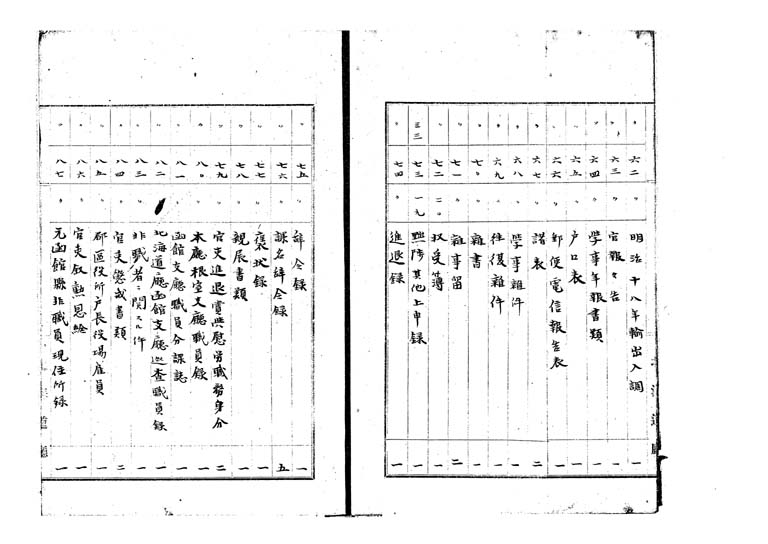 〃 六二 〃 明治十八年輸出入調 一
〃 六三 〃 官報々告 一
〃 六四 〃 学事年報書類 一
〃 六五 〃 戸口表 一
〃 六六 〃 郵便電信報告表 一
〃 六七 〃 諸表 二
〃 六八 〃 学事雑件 一
〃 六九 〃 往復雑件 一
〃 七〇 〃 雑書 一
〃 七一 〃 雑事留 二
〃 七二 二〇 収受簿 一
三三 七三 一九 黜陟其他上申録 一
〃 七四 〃 進退録 一
〃 七五 〃 辞令録 一
〃 七六 〃 課名辞令録 五
〃 七七 〃 褒状録 一
〃 七八 〃 親展書類 一
〃 七九 〃 官吏進退賞與慰労職務身分 二
〃 八〇 〃 本廳根室支廳職員録 一
〃 八一 〃 函館支廳職員分課誌 一
〃 八二 〃 北海道廳函館支廳巡査職員録 一
〃 八三 〃 非職者ニ関スル件 一
〃 八四 〃 官吏懲戒書類 二
〃 八五 〃 郡區役所戸長役場雇員 一
〃 八六 〃 官吏叙勲恩給 一
〃 八七 〃 元函館縣非職員現住所録 一